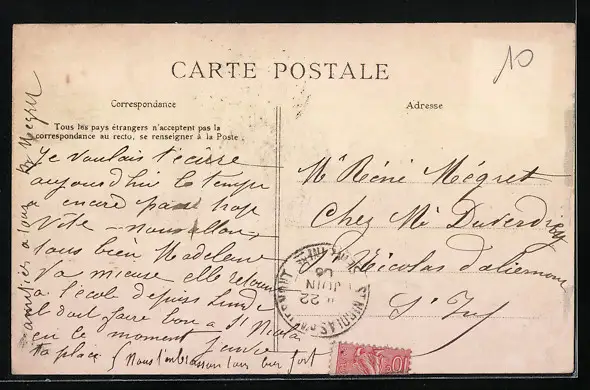 10
CARTE POSTALE
Correspondance
Adresse
Tous les pays étrangers n'acceptent pas la
correspondance au recto, se renseigner à la Poste.
Je voulais t'écrire
aujourd'hui le temps
a encore passé trop
vite - nous allons
tous bien Madeleine
va mieux elle retourne
à l'école depuis Lundi
il doit faire bon à St Nicolas
en ce moment
ta place
Nous t'embrassons tous bien fort
amitiés à tous
Mégret
Mr Réné Mégret
Chez Mr
St Nicolas d'aliermont
S. Inf
ST NICOLAS
22
JUIN
10